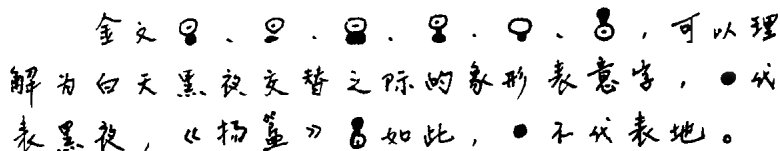 金文、、、、、，可以理
解为白天黑夜交替之际的象形表意字，●代
表黑夜，《扬簋》如此，●不代表地。